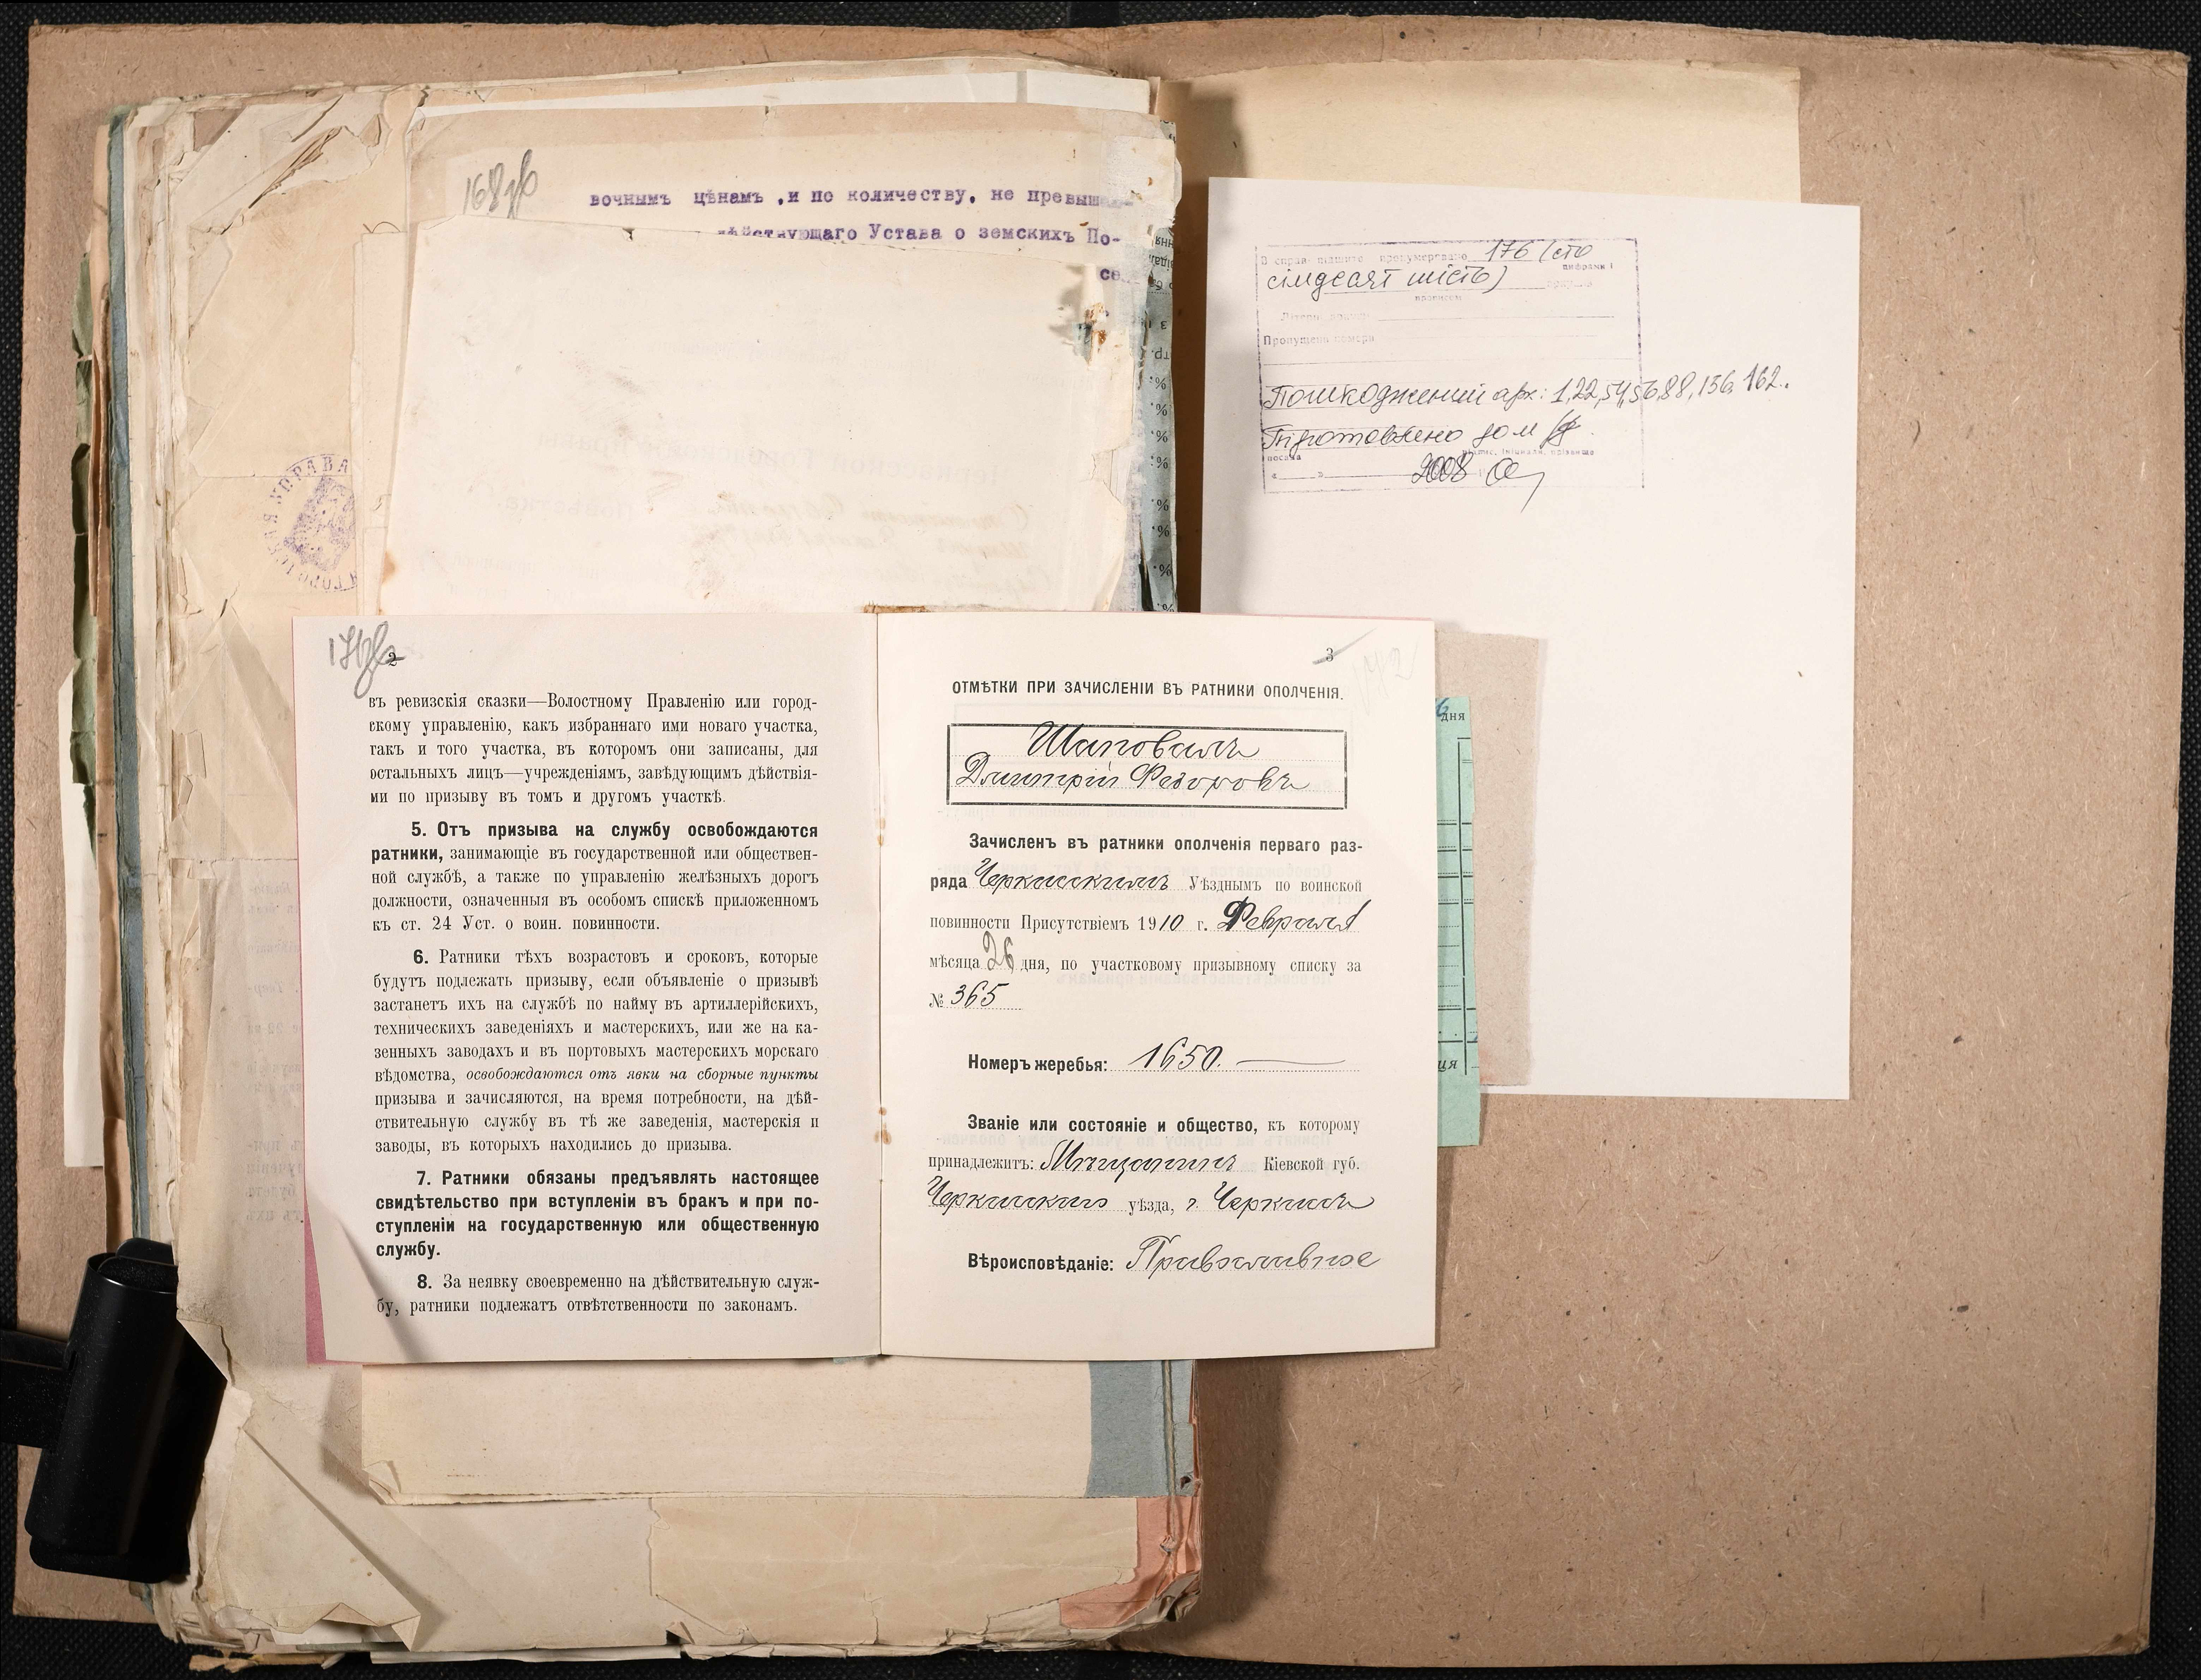 168зв
вочнымъ цѣнамъ ,и по количеству, не превыш
дѣйствующаго Устава о земскихъ По-
се
УПРАВА
171зв
2
въ ревизскія сказки—Волостному Правленію или город-
скому управленію, какъ избраннаго ими новаго участка,
такъ и того участка, въ которомъ они записаны, для
остальныхъ лицъ—учрежденіямъ, завѣдующимъ дѣйствія-
ми по призыву въ томъ и другомъ участкѣ.
5. Отъ призыва на службу освобождаются
ратники, занимающіе въ государственной или обществен-
ной службѣ, а также по управленію желѣзныхъ дорогъ
должности, означенныя въ особомъ спискѣ приложенномъ
къ ст. 24 Уст. о воин. повинности.
6. Ратники тѣхъ возрастовъ и сроковъ, которые
будутъ подлежать призыву, если объявленіе о призывѣ
застанетъ ихъ на службѣ по найму въ артиллерійскихъ,
техническихъ заведеніяхъ и мастерскихъ, или же на ка-
зенныхъ заводахъ и въ портовыхъ мастерскихъ морскаго
вѣдомства, освобождаются отъ явки на сборные пункты
призыва и зачисляются, на время потребности, на дѣй-
ствительную службу въ тѣ же заведенія, мастерскія и
заводы, въ которыхъ находились до призыва.
7. Ратники обязаны предъявлять настоящее
свидѣтельство при вступленіи въ бракъ и при по-
ступленіи на государственную или общественную
службу.
8. За неявку своевременно на дѣйствительную служ-
бу, ратники подлежатъ отвѣтственности по законамъ.
3
172
ОТМѢТКИ ПРИ ЗАЧИСЛЕНІИ ВЪ РАТНИКИ ОПОЛЧЕНІЯ.
Шаповалъ
Дмитрій Федоровъ
Зачисленъ въ ратники ополченія перваго раз-
ряда Черкасскимъ Уѣзднымъ по воинской
повинности Присутствіемъ 1910 г. Февраля
мѣсяца 26 дня, по участковому призывному списку за
№ 365
Номеръ жеребья: 1650.
Званіе или состояніе и общество, къ которому
принадлежитъ: Мѣщанинъ Кіевской губ.
Черкасскаго уѣзда, г. Черкассъ
Вѣроисповѣданіе: Православное
дня
В справі підшито пронумеровано 176 (сто
цифрами і
сімдесят шість)
прописом
Пропущено номера
Пошкоджений арк: 1,22,54,56,88,156,162.
Підготовлено до м
посада підпис, ініціали, прізвище
2008